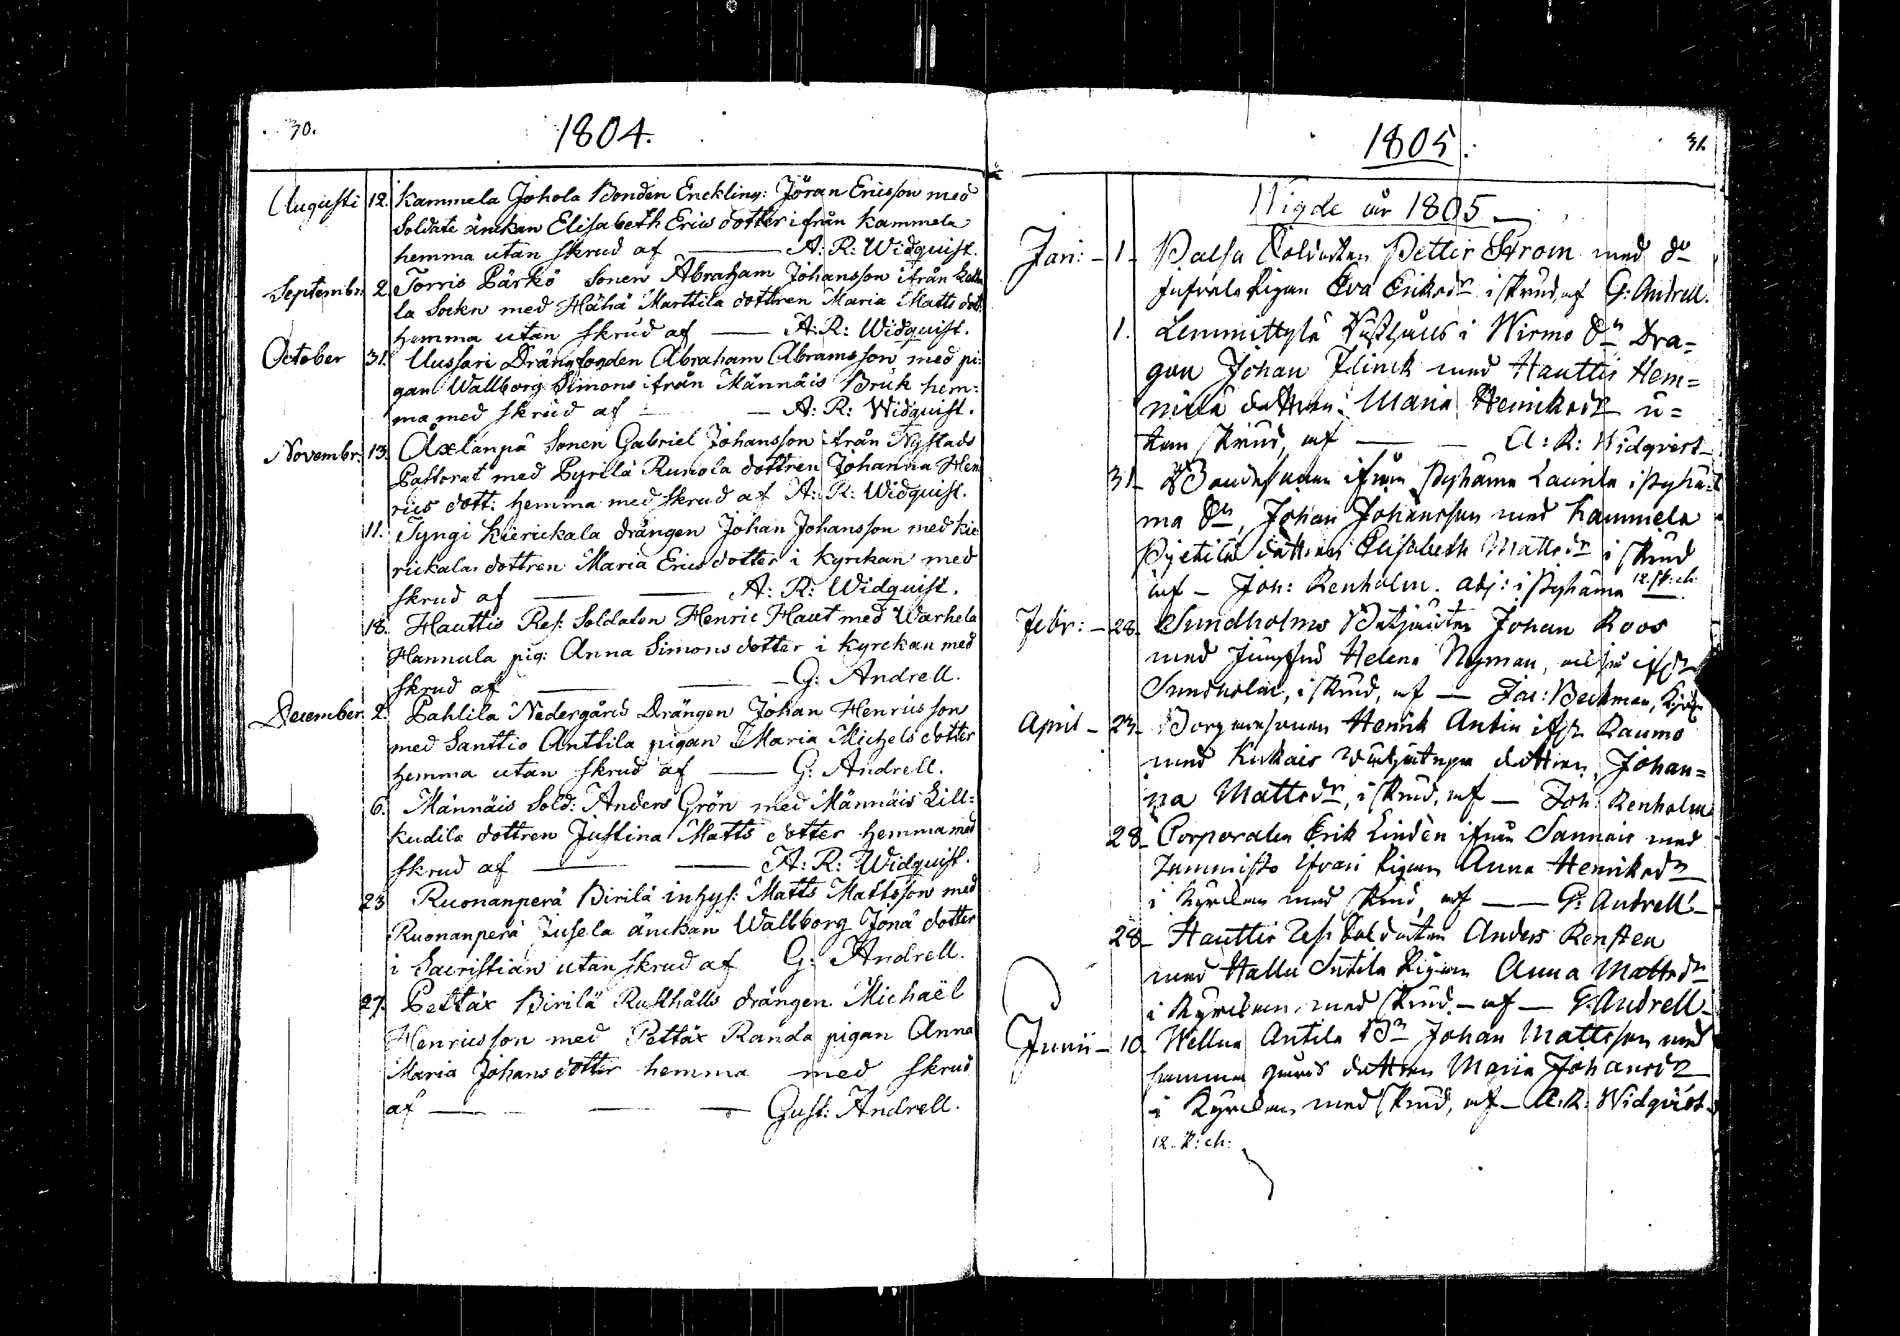 30.
1804.
Augusti 12. Kammela Johola Bonden Enckling: Jöran Ericsson med
Soldate änckan Elisabeth Erics dotter ifrån Kammela
hemma utan skrud af — A: R: Widquist.
Septembr: 2. Torris Pärkö Sonen Abraham Johansson ifrån
la Sockn med Hähä Marttila dottren Maria Matts dott:
hemma utan skrud af — A: R: Widquist.
October 31. Uussari Drängfogden Abraham Abramsson med pi:
gan Wallborg Simons ifrån Männäis Bruk hem:
ma med skrud af — A: R: Widquist.
Novembr: 13. Alxlanpä Sonen Gabriel Johansson ifrån Nystads
Pastorat med Pyrilä Runola dottren Johanna Hen
rics dott: hemma med skrud af A: R: Widquist.
11. Tyngi Kierickala drängen Johan Johansson med Kie
rickala dottren Maria Erics dotter i Kyrckan med
skrud af — — A: R: Widquist.
18. Hauttis Res: Soldaten Henric Haut med Warhela
Hannula pig: Anna Simons dotter i Kyrckan med
skrud af — — G: Andrell.
December 2. Pahlila Nedergårds Drängen Johan Henricsson
med Santtio Anttila pigan Maria Michels dotter
hemma utan skrud af — G: Andrell.
6. Männäis Sold: Anders Grön med Männäis Lill=
kudila dottren Justina Matts dotter hemma med
skrud af — — A: R: Widquist.
23 Ruonanperä Birilä inhys: Matts Mattsson med
Ruonanperä Jusela änckan Wallborg Jonä dotter
i Sacristian utan skrud af G: Andrell.
27. Pettäx Birilä Rusthålls drängen Michaël
Henricsson med Pettäx Randa pigan Anna
Maria Johans dotter hemma med skrud
af — — — Gust: Andrell.
31.
1805.
Wigde år 1805
Jan: – 1 – Palsa Soldaten Petter Strom med
Pigan Eva Eriksdr i skrud af G: Andrell.
1. Lemmittylä Rusthålls i Wirmo Sn Dra=
gon Johan Flinck med Hauttis Hem=
milä dottren Maria Henriksdr u=
tan skrud, af — — A: R: Widqvist –
31 – Bondesonen ifrån Pyhäma Laurila i Pyhä=
ma Sn, Johan Johansson med Kammela
Pietilä dottren Elisabeth Mattsdr i skrud
af – Joh: Renholm. adj: i Pyhäma
Febr: – 28. Sundholms Betjenten Johan Roos
med Jungfrud Helena Nyman,
Sundholm, i skrud, af — Jac: Beckman,
April – 23 – Borgaresonen Henrik Antin ifr. Raumo
med dottren Johan=
na Mattsdr, i skrud, af — Joh: Renholm
28 – Corporalen Erik Lindèn ifrån Sannais med
Pigan Anna Henriksdr
i Kyrckan med skrud, af — — G: Andrell –
28 – Hauttis Res: Soldaten Anders Rensten
med Hallu Sutila Pigan Anna Mattsdr
i Kyrckan, med skrud, – af — G: Andrell –
Junii – 10 Wellua Antila Johan Mattsson med
samma gårds dottren Maria Johansdr
i Kyrckan, med skrud, af – A. R: Widqvist –
12